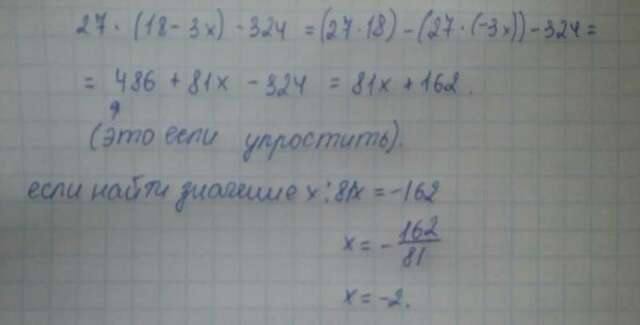 27 · (18 - 3x) - 324 = (27 · 18) - (27 · (-3x)) - 324 =
= 486 + 81x - 324 = 81x + 162.
(это если упростить).
если найти значение x: 81x = -162
x = - 162/81
x = -2.